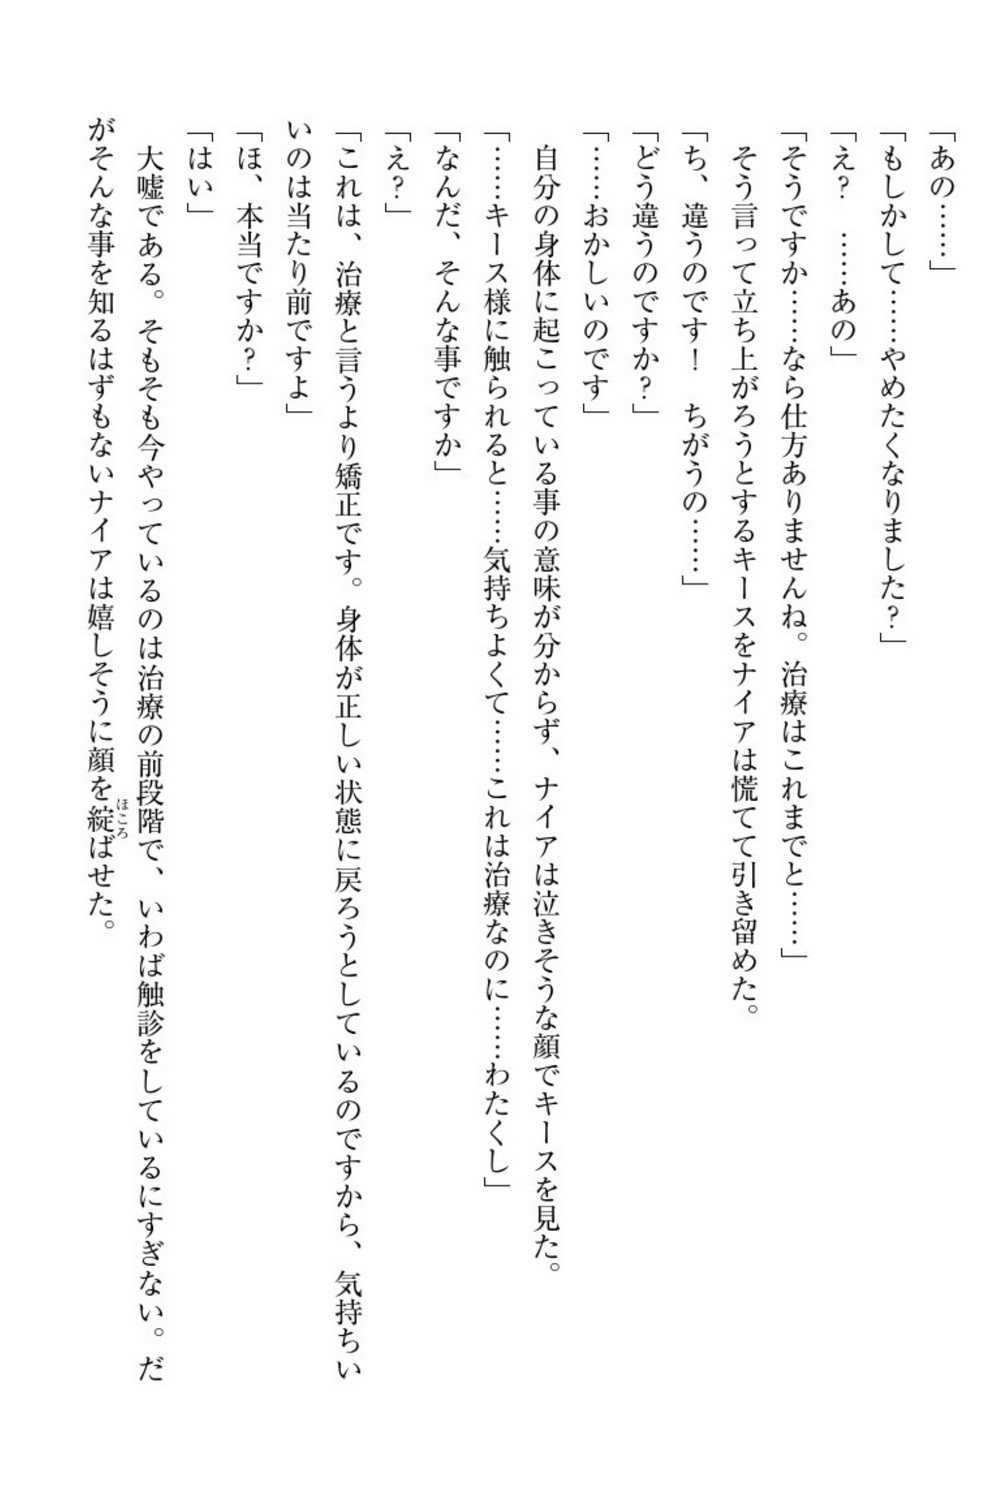 「あの……」
「もしかして……やめたくなりました？」
「え？　……あの」
「そうですか……なら仕方ありませんね。治療はこれまでと……」
　そう言って立ち上がろうとするキースをナイアは慌てて引き留めた。
「ち、違うのです！　ちがうの……」
「どう違うのですか？」
「……おかしいのです」
　自分の身体に起こっている事の意味が分からず、ナイアは泣きそうな顔でキースを見た。
「……キース様に触られると……気持ちよくて……これは治療なのに……わたくし」
「なんだ、そんな事ですか」
「え？」
「これは、治療と言うより矯正です。身体が正しい状態に戻ろうとしているのですから、気持ちい
いのは当たり前ですよ」
「ほ、本当ですか？」
「はい」
　大嘘である。そもそも今やっているのは治療の前段階で、いわば触診をしているにすぎない。だ
がそんな事を知るはずもないナイアは嬉しそうに顔を綻ばせた。
ほころ